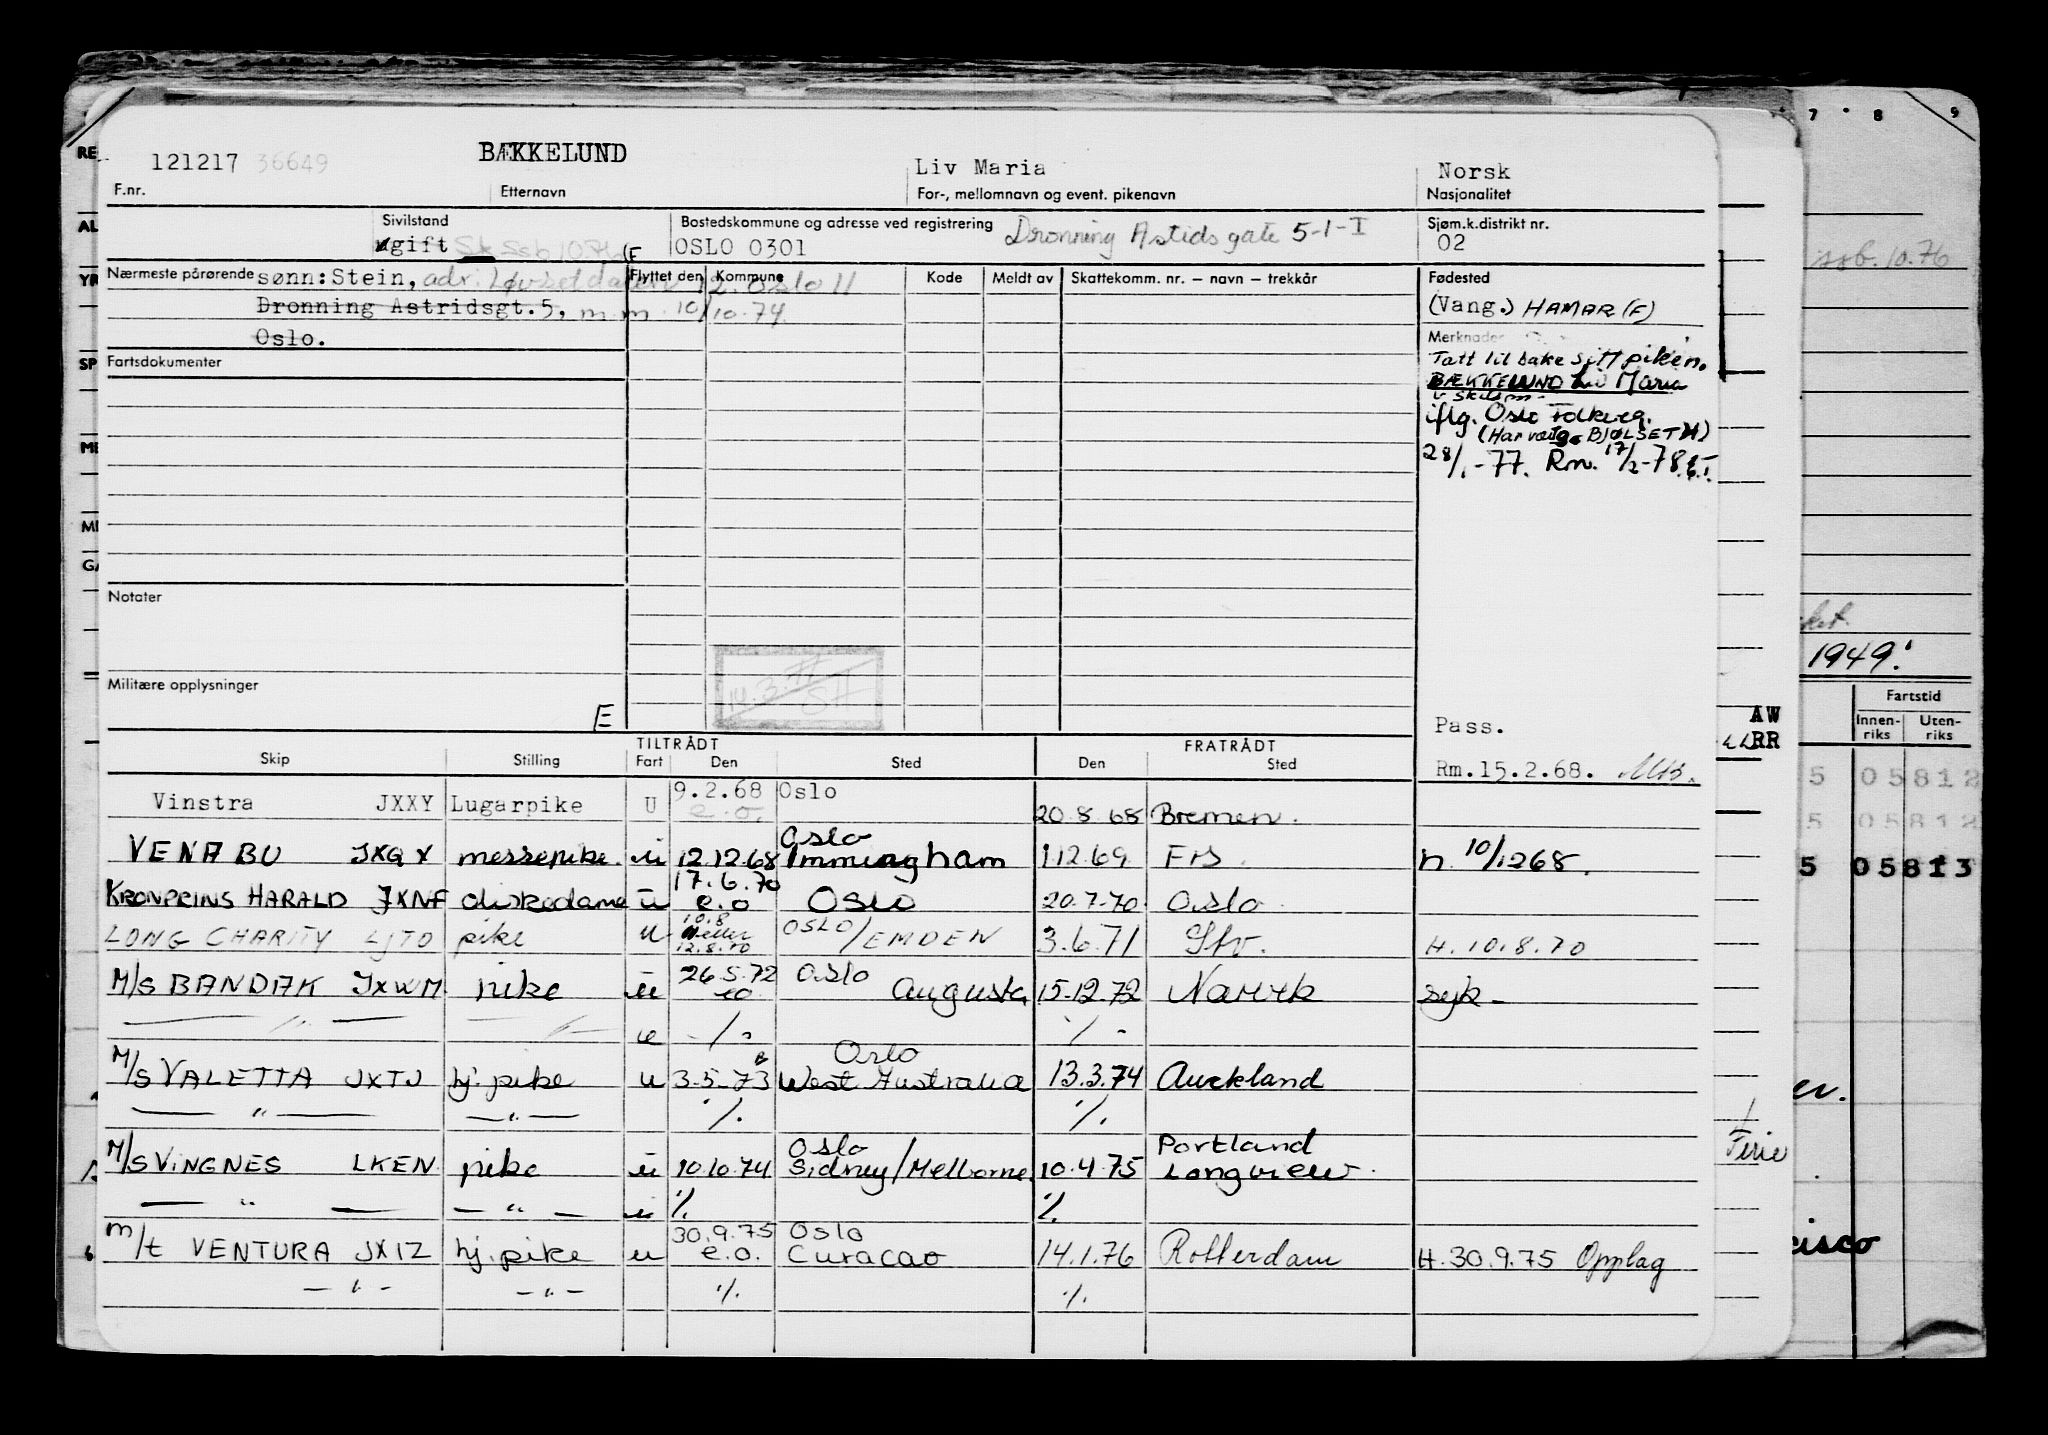 121217 36649 BÆKKELUND Liv Maria Norsk
F.nr. Etternavn For-, mellomnavn og event. pikenavn Nasjonalitet
Sivilstand Bostedskommune og adresse ved registrering Dronning Astids gate 5-1-I Sjøm.k.distrikt nr.
ugift OSLO 0301 02
Nærmeste pårørende sønn: Stein, adr. Flyttet den Kommune Kode Meldt av Skattekomm. nr. — navn — trekkår Fødested
Dronning Astridsgt. 5, m.m. 10/10.74 (Vang.) HAMAR (F)
Oslo. Merknader
Fartsdokumenter Tatt til bake sitt piken.
BÆKKELUND Liv Maria
v skilsm.
iflg. Oslo Folkereg.
28/1.-77. Rm. 17/2-78
Notater
14.3.77
Militære opplysninger
E
Pass.
Rm.15.2.68.
TILTRÅDT FRATRÅDT
Skip Stilling Fart Den Sted Den Sted
Vinstra JXXY Lugarpike U 9.2.68 e.o. Oslo 20.8.68 Bremen.
VENABU JXQX messepike u 12.12.68 Oslo Immingham 1.12.69 Frs. h. 10/1268.
KRONPRINS HARALD JXNF diskedame u 17.6.70 e.o Oslo 20.7-70 Oslo
LONG CHARITY LJTO pike u 10.8 eller 12.8.70 OSLO/EMDEN 3.6.71 Stv. H. 10.8.70
M/S BANDAK JXWM pike u 26.5.72 eo Oslo Augusta 15-12.72 Narvik syk-
— " — — " — u -/- -/-
M/S VALETTA JXTJ hj. pike u 3-5-73 Oslo West Australia 13.3.74 Auckland
— " — — " — -/. -/.
M/S VINGNES LKEN pike u 10.10.74 Oslo Sidney/Melborne. 10.4.75 Portland Longview.
— " — — " — u -/. -/.
m/t VENTURA JXIZ hj. pike u 30.9.75 e.o. Oslo Curacao 14.1.76 Rotterdam H. 30.9.75 Opplag
— " — — " — -/. -/.
RE
AL
YR
SP
GA
7 8 9
ssb. 10.76
1949.
Fartstid
Innen-riks Uten-riks
AW
RR
5 05812
5 05812
5 05813
Ferie